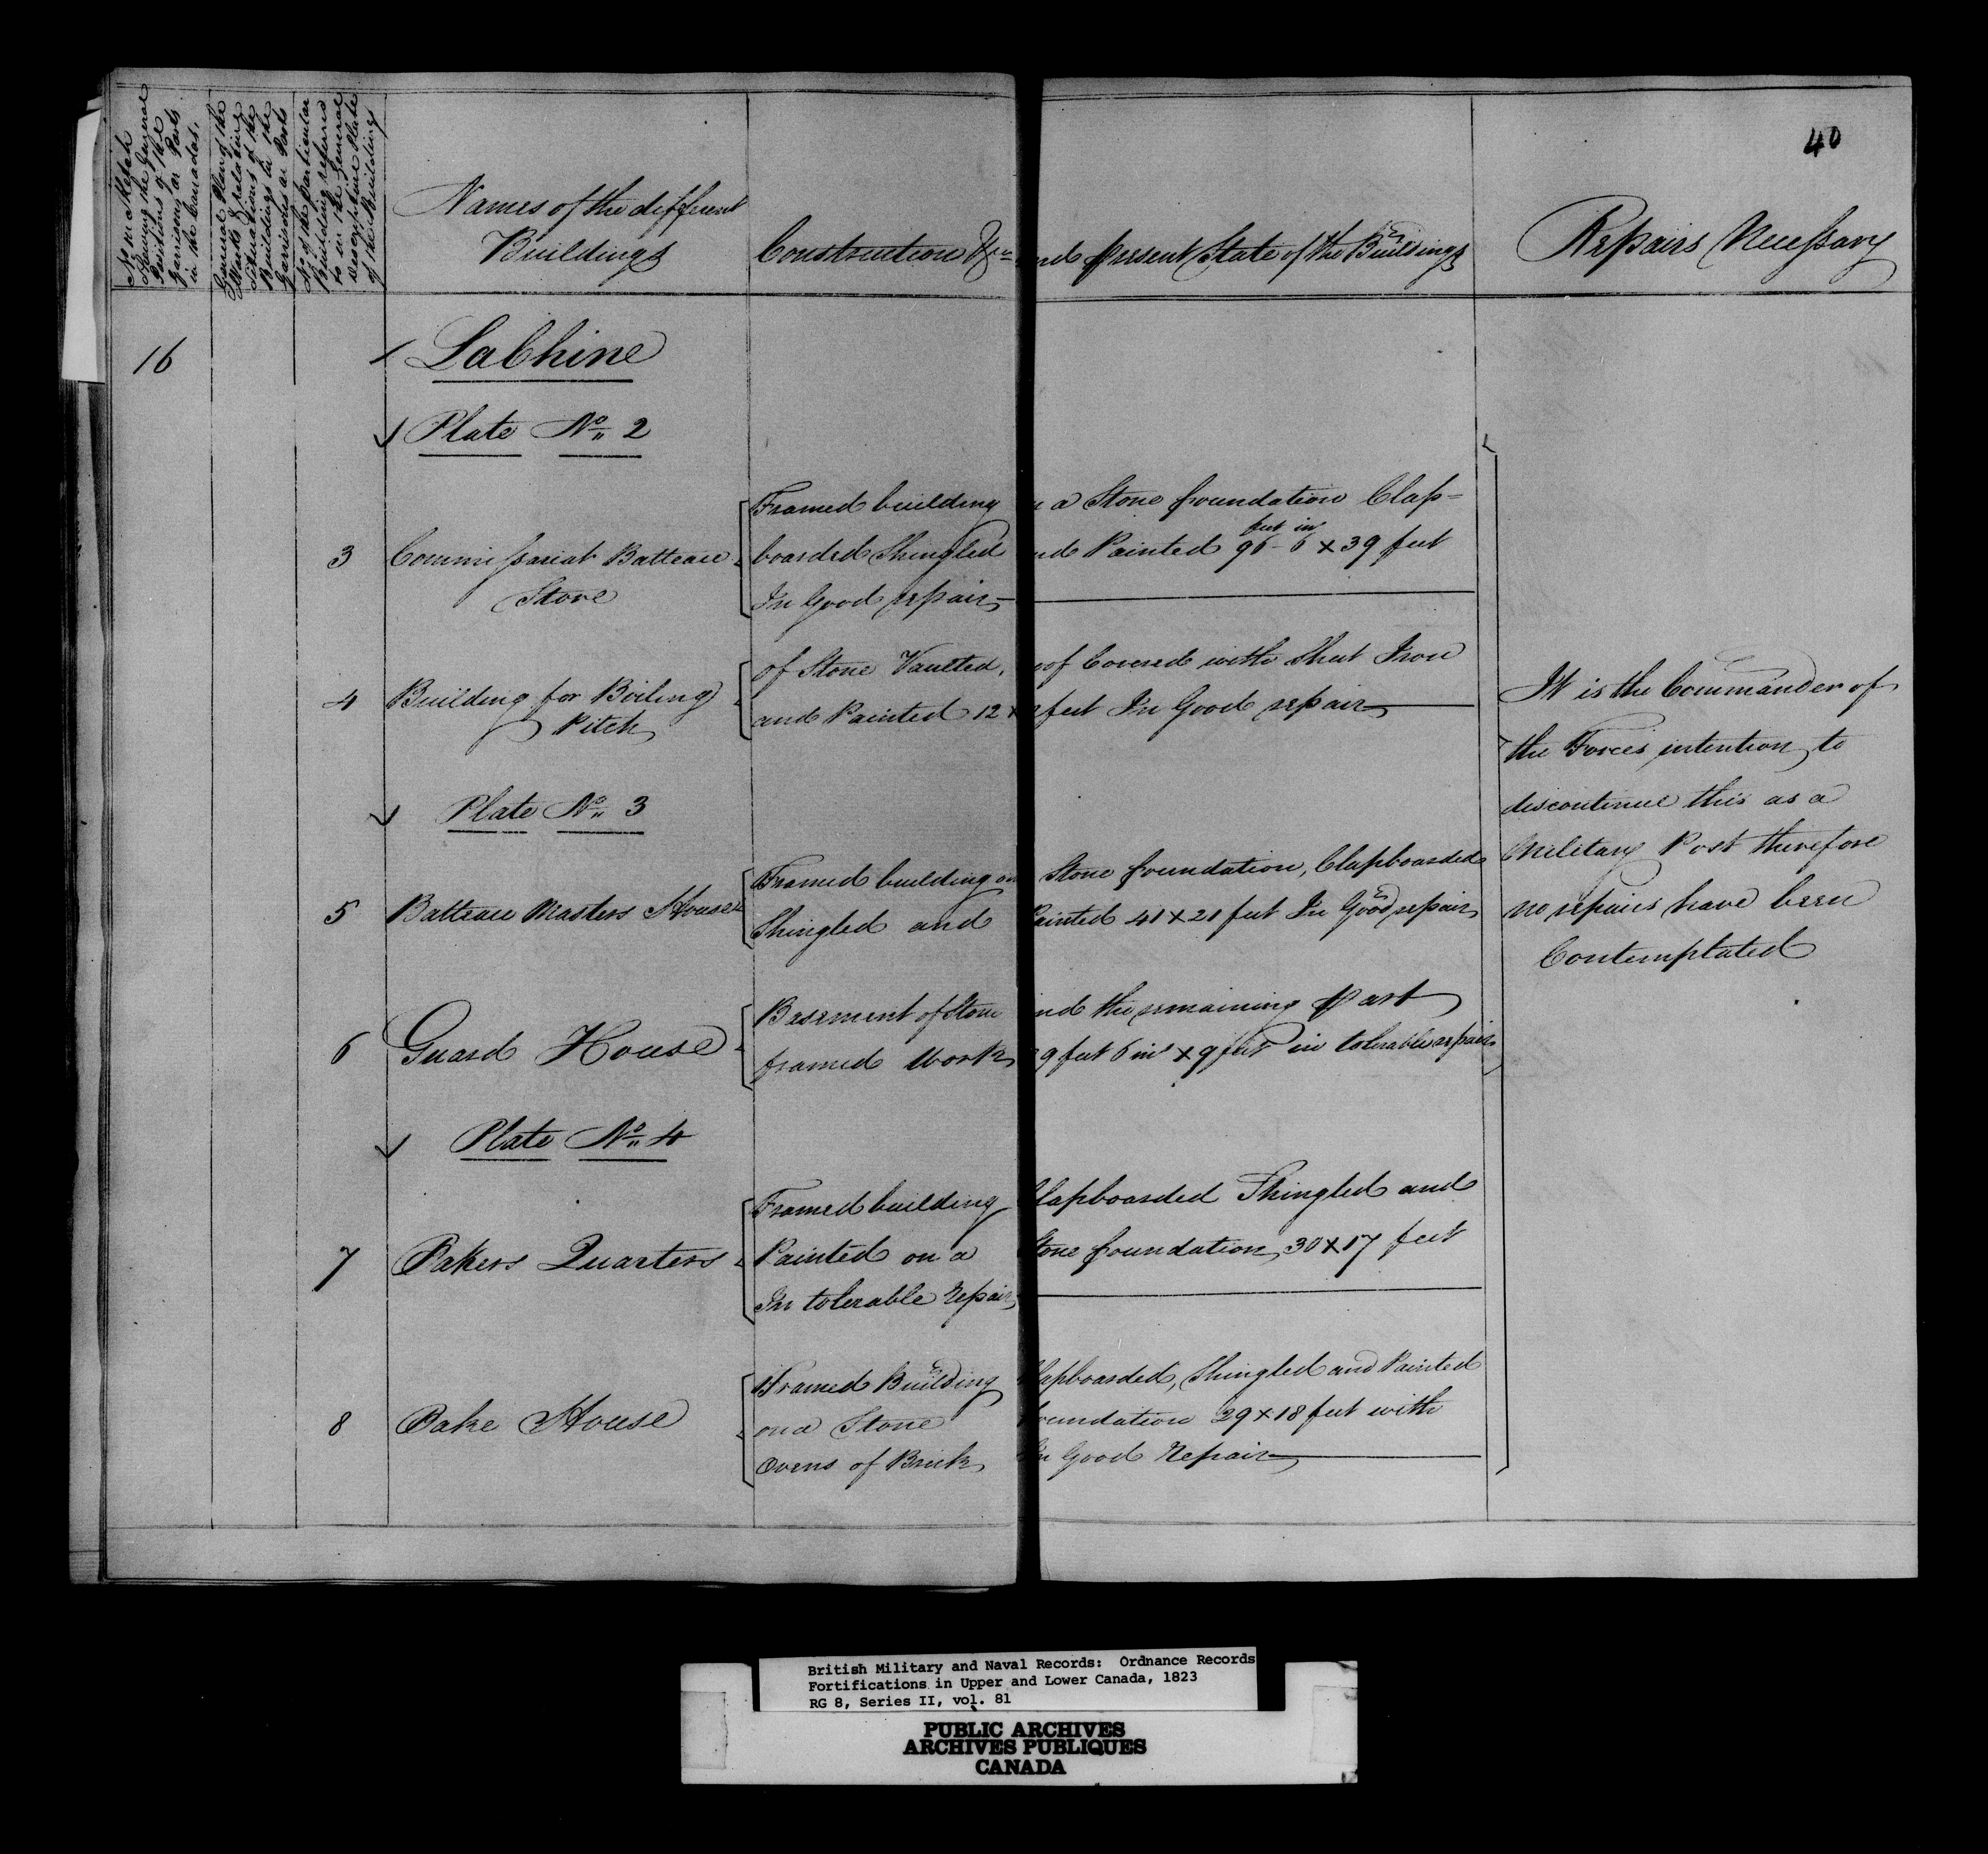 40
No on Sketch
Shewing the General
Positions of the
Garrisons or Posts
in the Canadas.
General Plan of the
Works & relating
Situations of the
Buildings in the
Garrisons or Posts
No of the particular
Building referred
to in the General
descriptive Plate
of the Building
Names of the different
Buildings
Construction &ca nd present State of the Buildings
Repairs Necessary
16 LaChine
Plate No 2
Framed building n a Stone foundation Clap=
feet in
3 Commissariat Batteau boarded Shingled nd Painted 96-6 x 39 feet
Store In Good repair
of Stone Vaulted, oof Covered with Sheet Iron
4 Building for Boiling and Painted 12 x feet In Good repair
Pitch
Plate No 3
Framed building on Stone foundation, Clapboarded
5 Batteau Masters House Shingled and Painted 40 x 20 feet In Good repair
Basement of Stone and the remaining Part
6 Guard House framed Work 9 feet 6 in x 9 feet in tolerable repair
Plate No 4
Framed building Clapboarded Shingled and
7 Bakers Quarters Painted on a Stone foundation, 30 x 17 feet
In tolerable Repair
Framed Building lapboarded, Shingled and Painted
8 Bake House on a Stone foundation 29 x 18 feet with
Ovens of Brick In Good Repair
It is the Commander of
the Forces intention to
discontinue this as a
Military Post therefore
no repairs have been
Contemplated
British Military and Naval Records: Ordnance Records
Fortifications in Upper and Lower Canada, 1823
RG 8, Series II, vol. 81
PUBLIC ARCHIVES
ARCHIVES PUBLIQUES
CANADA